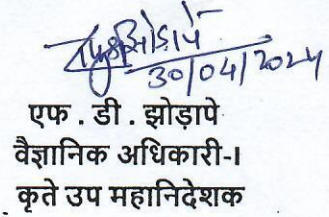 झोडापे
30/04/2024
एफ . डी . झोड़ापे
वैज्ञानिक अधिकारी-I
कृते उप महानिदेशक